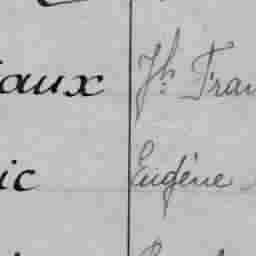 iaux Jh. Fran
ic Eugène